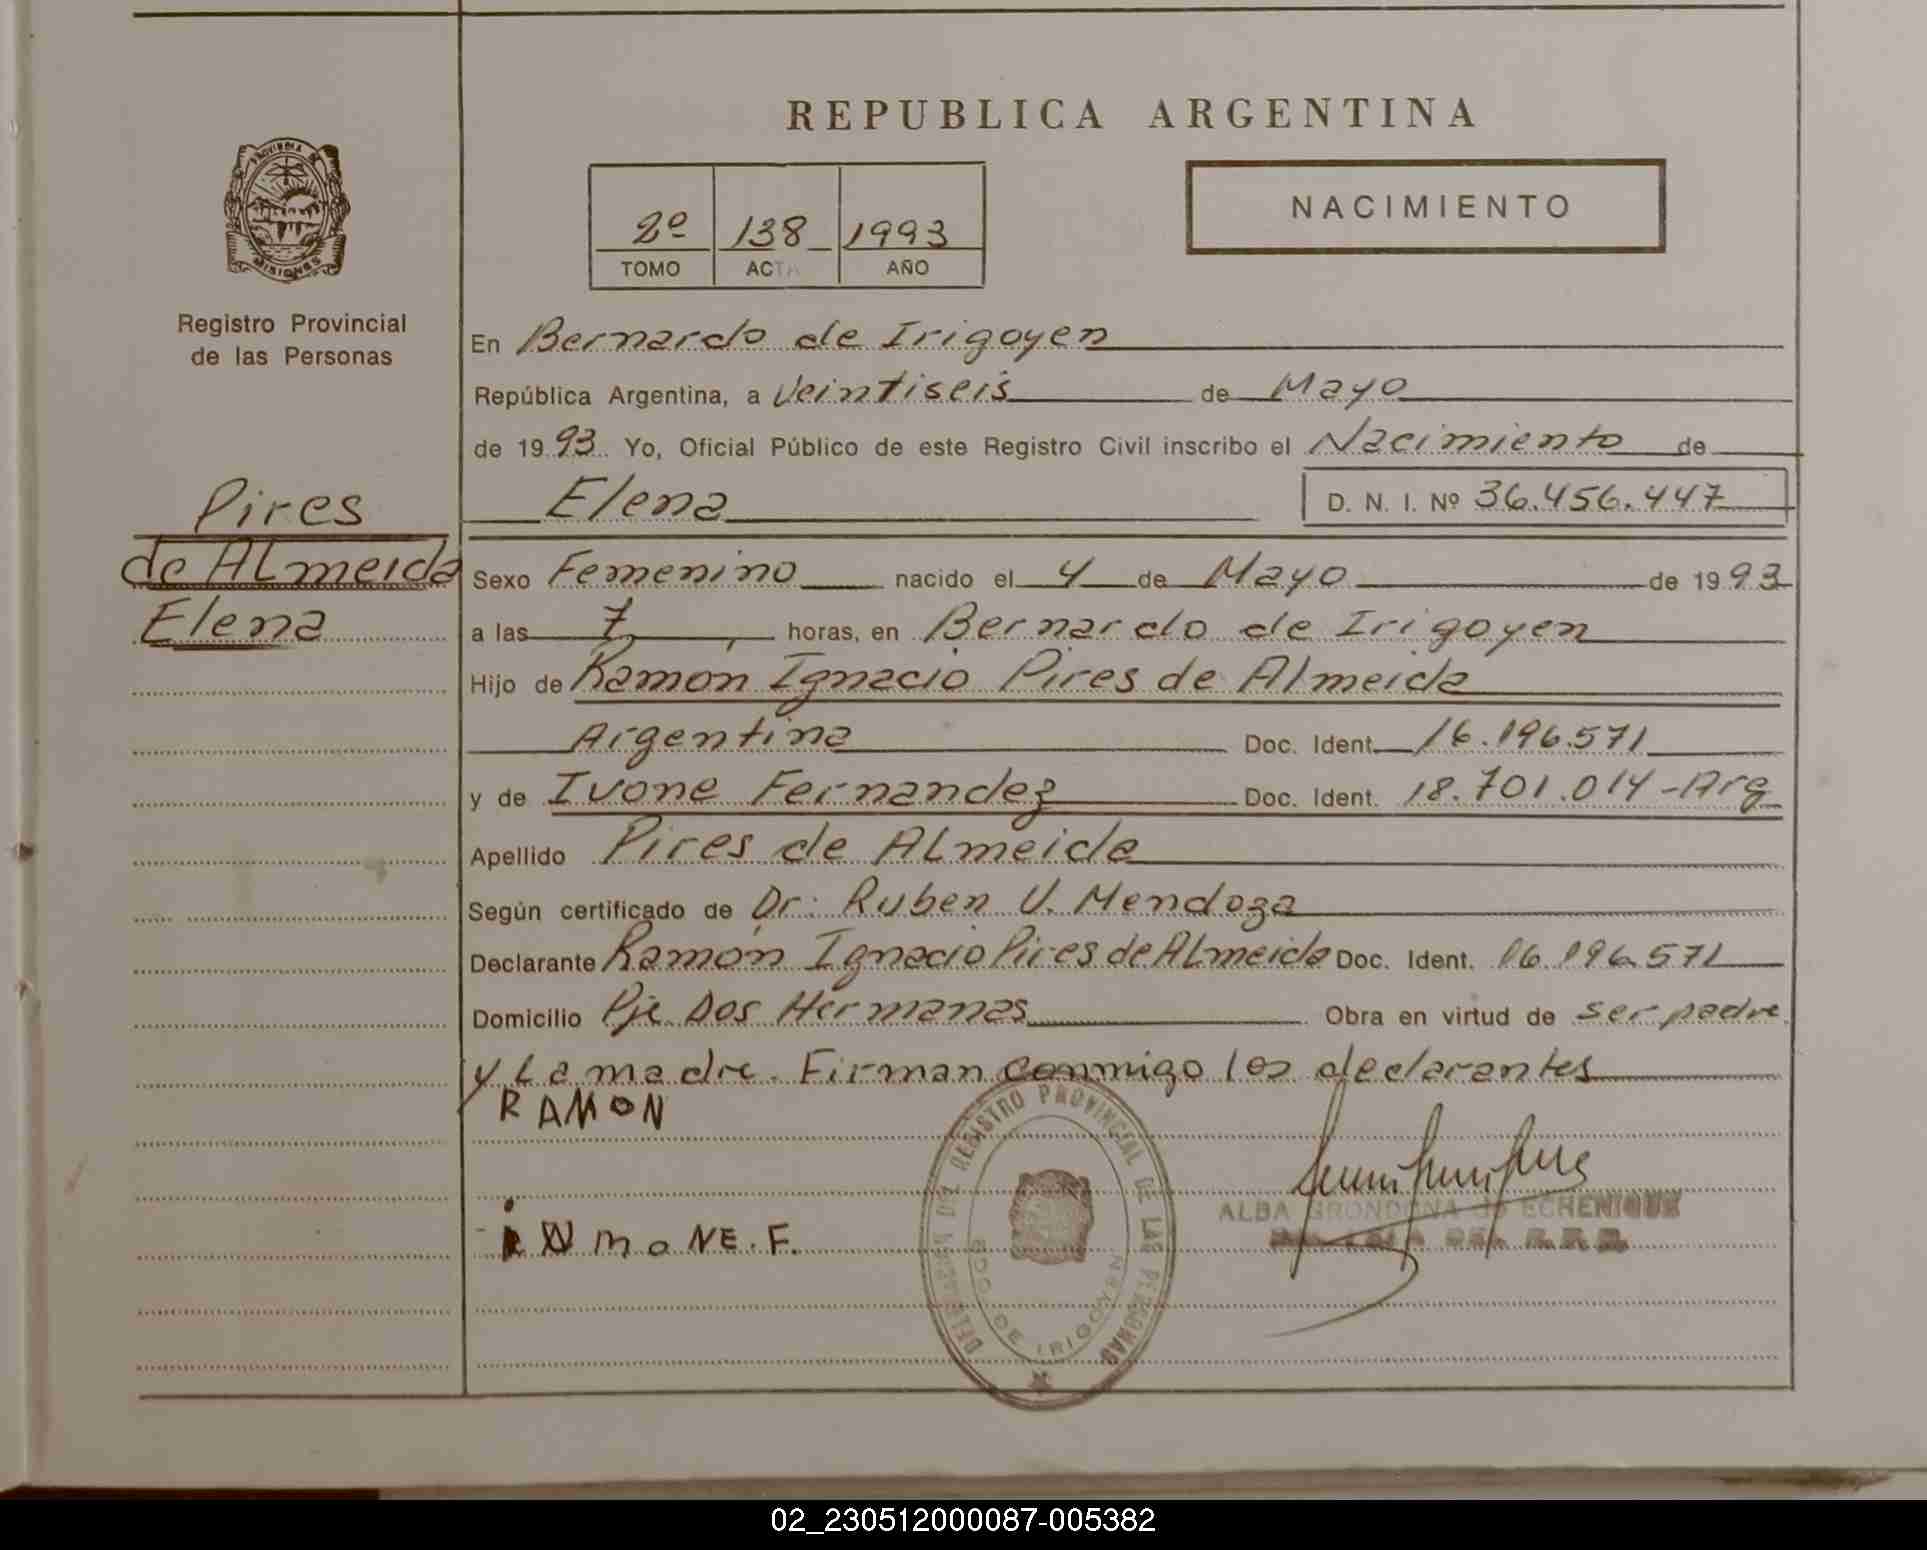 REPUBLICA ARGENTINA
PROVINCIA DE
MISIONES
Registro Provincial
de las Personas
2º 138 1993
TOMO ACTA AÑO
NACIMIENTO
En Bernardo de Irigoyen
República Argentina, a Veintiseis de Mayo
de 1993 Yo, Oficial Público de este Registro Civil inscribo el Nacimiento de
Elena D. N. I. Nº 36.456.447
Pires
de ALmeida
Elena
Sexo Femenino nacido el 4 de Mayo de 1993
a las 7, horas, en Bernardo de Irigoyen
Hijo de Ramón Ignacio Pires de Almeida
Argentina Doc. Ident. 16.196.571
y de Ivone Fernandez Doc. Ident. 18.701.014-Arg
Apellido Pires de ALmeida
Según certificado de Dr: Ruben V. Mendoza
Declarante Ramón Ignacio Pires de ALmeida Doc. Ident. 16.196.571
Domicilio Pje Dos Hermanas Obra en virtud de ser padre
y La madre. Firman conmigo los declarantes
RAMON
REGISTRO PROVINCIAL DE LAS PERSONAS
BDO. DE IRIGOYEN
ALBA GRONDONA de ECHENIQUE
DEL R.P.P.
NE.F.
02_230512000087-005382